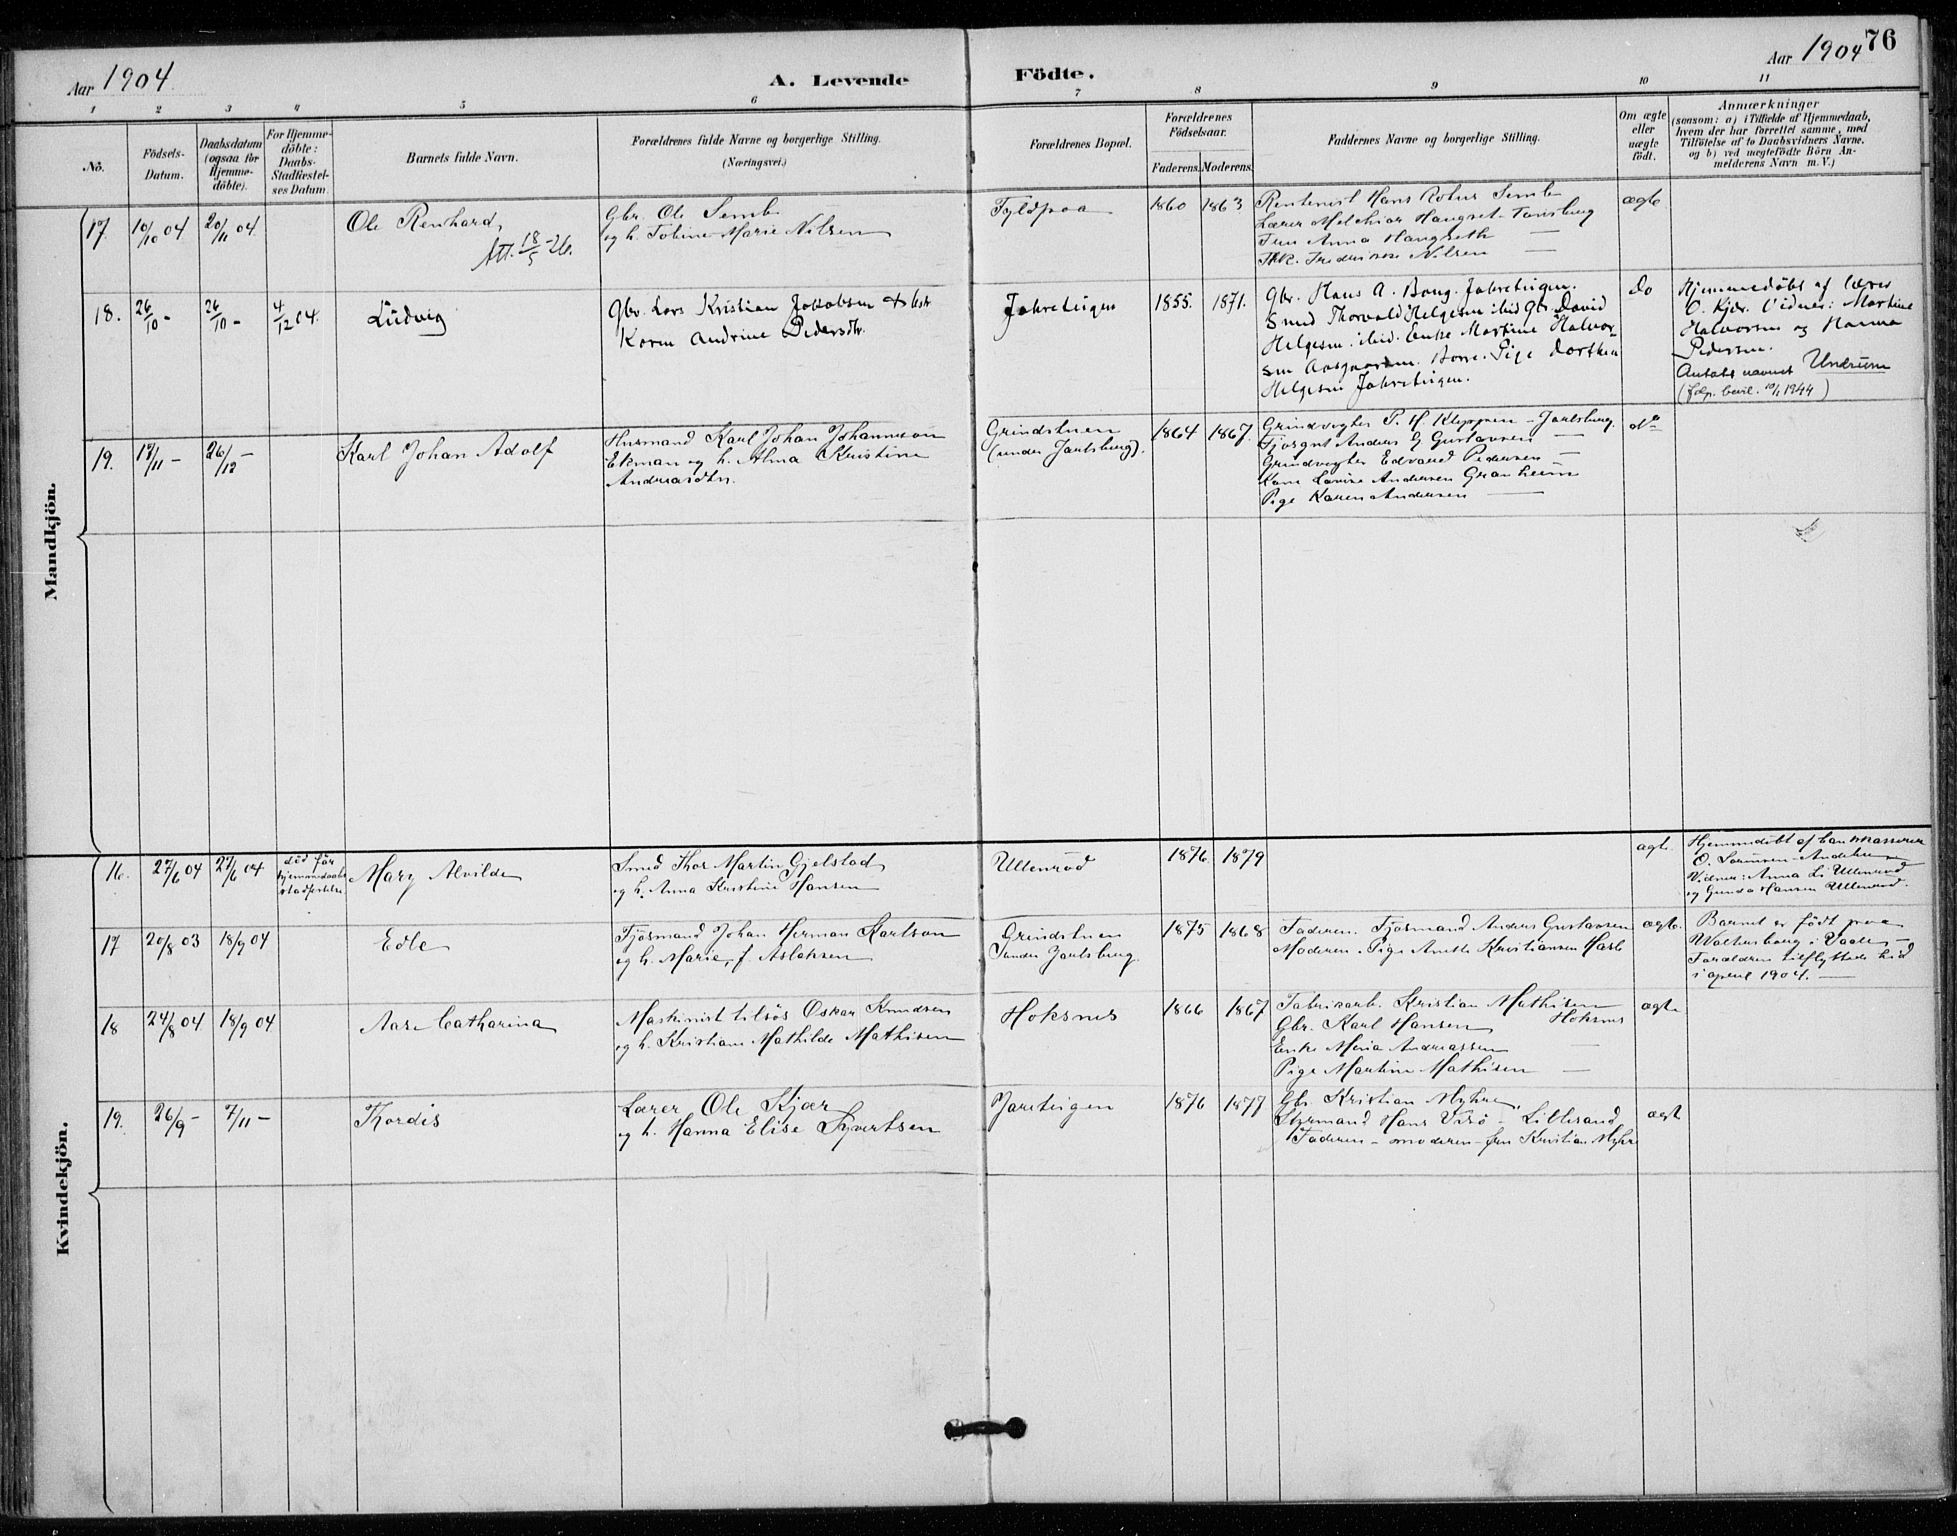 76
Aar 1904
A. Levende Födte.
Aar 1904
1 2 3 4 5 6 7 8 9 10 11
No.
Födsels-
Datum.
Daabsdatum
(ogsaa for
Hjemme-
döbte).
For Hjemme-
döbte:
Daabs-
Stadfæstel-
ses Datum.
Barnets fulde Navn.
Forældrenes fulde Navne og borgerlige Stilling.
(Næringsvei.)
Forældrenes Bopæl.
Forældrenes
Födselsaar.
Faderens. Moderens.
Faddernes Navne og borgerlige Stilling.
Om ægte
eller
uægte
födt.
Anmærkninger
(saasom: a) i Tilfælde af Hjemmedaab,
hvem der har forrettet samme, med
Tilföielse af to Daabsvidners Navne,
og b) ved uægtefödte Börn An-
melderens Navn m. V.)
Mandkjön.
17. 10/10 04 20/11 04
Ole Renhard,
Att. 18/5-26.
Gbr. Ole Semb
og h. Tobine Marie Nilsen
1860 1863
Rentenist Hans Semb
Lærer Melchior Haugset - Tønsberg
Fru Anna Haugseth —
Frk. Frederikke Nilsen —
ægte
18. 26/10 - 26/10 - 4/12 04.
Ludvig
Gbr. Lars Kristian Jakobsen & hst
Karen Andrine Pedersdtr.
Jahreteigen
1855. 1871.
Gbr. Hans A. Bong. Jahreteigen.
Smed Thorvald Helgesen ibid Gbr. David
Helgesen. ibid. Enke Martine Halvor-
sen Aasgaarden. Borre. Pige Dorthea
Helgesen Jahreteigen.
do
Hjemmedøbt af lærer
O. Kjær. Vidner: Martine
Halvorsen og Hanna
Pedersen.
Antat navnet Undrum
(flg. bevil. 10/1 1944)
19. 17/11 - 26/12 -
Karl Johan Adolf
Husmand Karl Johan Johannesson
Ekman og h. Alma Kristine
Andreasdtr.
Grindstuen
(under Jarlsberg).
1864 1867.
Grindvogter P. H. Kleppen - Jarlsberg.
Fjøsgut Anders G Gustavsen —
Grindvogter Edvard Pedersen —
Kone Lovise Andersen Granheim
Pige Karen Andersen —
do
Kvindekjön.
16. 27/6 04 27/6 04
død før
hjemmedaabs
stadfestelse
Mary Alvilde
Smed Thor Martin Gjelstad
og h. Anna Kristine Hansen
Ullenrød
1876 1879
ægte.
Hjemmedøbt af bankkasserer
O. Sørensen Andebu
Vidner: Anna L. Ullenrød
og Gunda Hansen Ullenrød.
17 20/8 03 18/9 04
Edle
Fjøsmand Johan Herman Karlson
og h. Marie, f Aslaksen
Grindstuen
under Jarlsberg
1875 1868
Faderen. Fjøsmand Anders Gustavsen
Moderen. Pige Anette Kristiansen
ægte.
Barnet er født paa
i Vaale —
Forældrene tilflyttede hid
i april 1904. —
18 24/8 04 18/9 04
Aase Catharina
Maskinist tilsøs Oskar Knudsen
og h. Kristiane Mathilde Mathisen
Hoksnes
1866 1867
Fabrikarb. Kristian Mathisen
Gbr. Karl Hansen Hoksnes
Enke Maria Andreassen —
Pige Martine Mathisen —
ægte
19. 26/9 - 7/11 -
Thordis
Lærer Ole Kjær
og h. Hanna Elise Syvertsen
Jareteigen
1876 1877
Gbr. Kristian Myhre
Styrmand Hans Visø - Lillesand
Faderen - moderen - fru Kristian Myhre
ægte